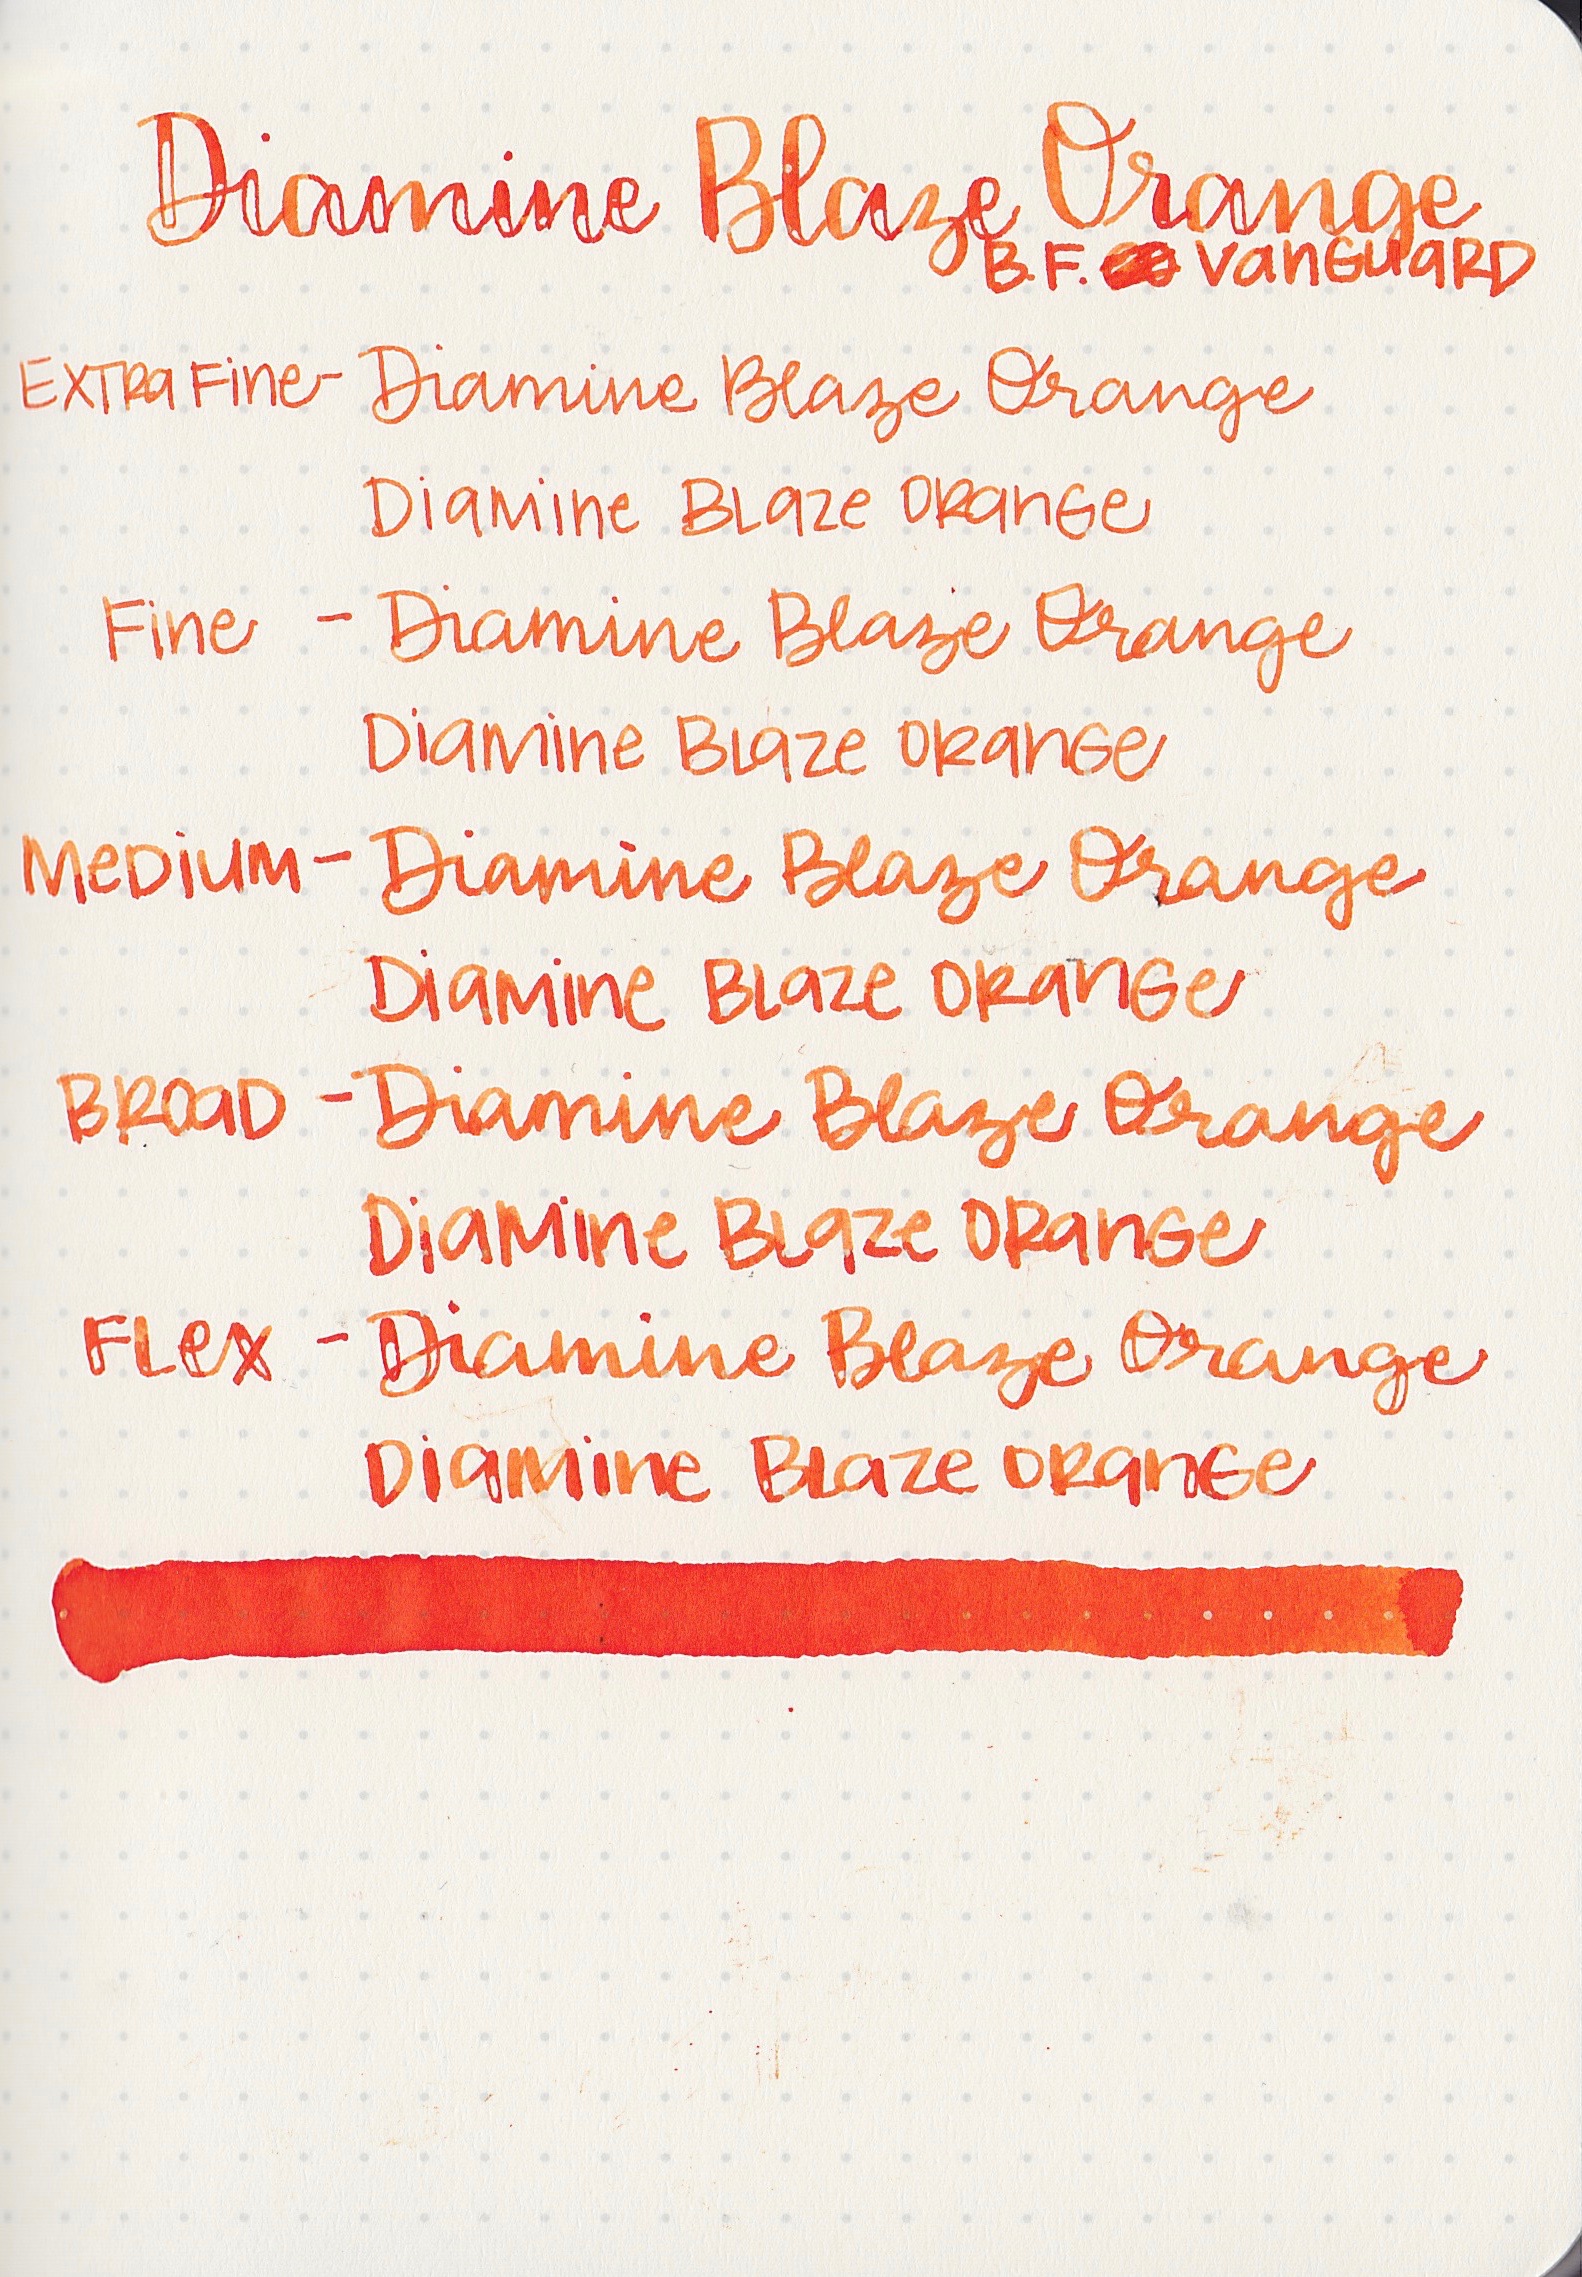 Diamine Blaze Orange
B.F. VANGUARD
EXTRA FINE - Diamine Blaze Orange
DIAMINE BLAZE ORANGE
FINE - Diamine Blaze Orange
DIAMINE BLAZE ORANGE
MEDIUM - Diamine Blaze Orange
DIAMINE BLAZE ORANGE
BROAD - Diamine Blaze Orange
DIAMINE BLAZE ORANGE
FLEX - Diamine Blaze Orange
DIAMINE BLAZE ORANGE